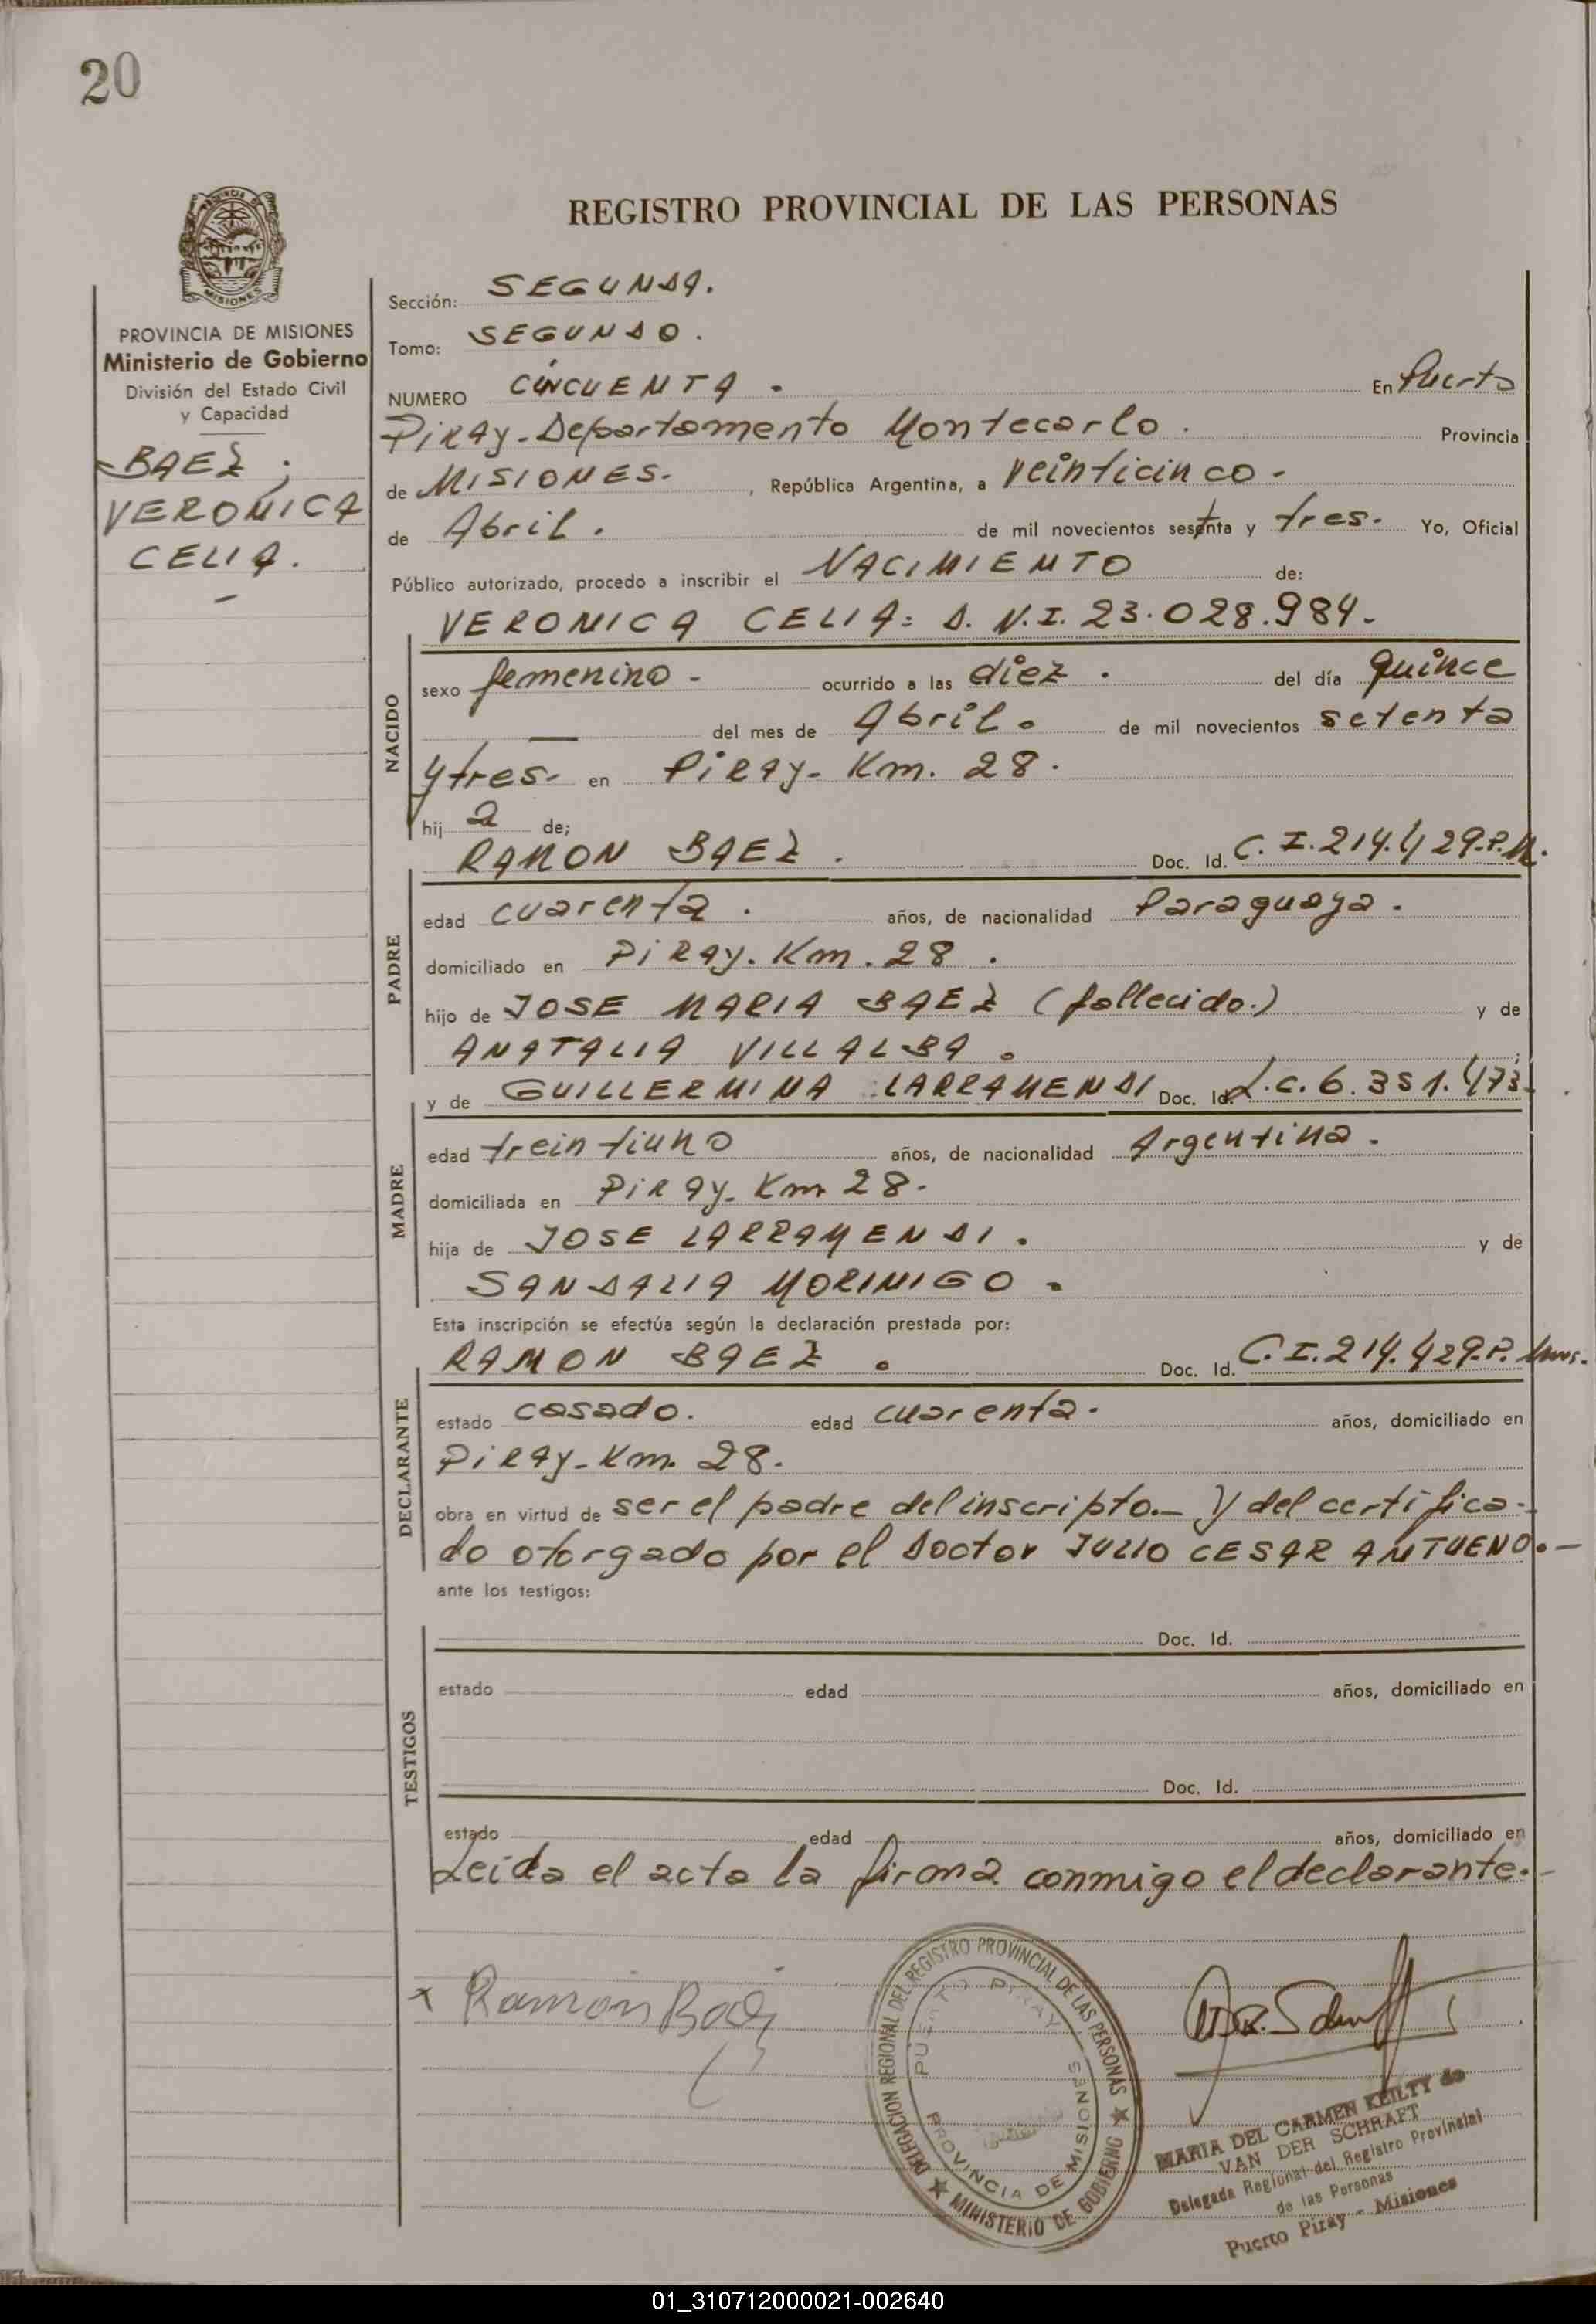 20
PROVINCIA DE
MISIONES
REGISTRO PROVINCIAL DE LAS PERSONAS
PROVINCIA DE MISIONES
Ministerio de Gobierno
División del Estado Civil
y Capacidad
BAEZ;
VERONICA
CELIA.
Sección: SEGUNDA.
Tomo: SEGUNDO.
NUMERO CINCUENTA. En Puerto
Piray-Departamento Montecarlo. Provincia
de MISIONES. , República Argentina, a veinticinco-
de Abril. de mil novecientos setenta y tres. Yo, Oficial
Público autorizado, procedo a inscribir el NACIMIENTO de:
VERONICA CELIA: D. N.I. 23.028.984.
NACIDO
sexo femenino- ocurrido a las diez. del día quince
— del mes de Abril. de mil novecientos setenta
y tres. en Piray- Km. 28.
hij a de;
RAMON BAEZ. Doc. Id. C. I. 214.429.P.M.
PADRE
edad cuarenta. años, de nacionalidad Paraguaya.
domiciliado en Piray. Km. 28.
hijo de JOSE MARIA BAEZ (fallecido.) y de
ANATALIA VILLALBA.
y de GUILLERMINA LARRAMENDI Doc. Id. L.C. 6.351.473.
MADRE
edad treintiuno años, de nacionalidad Argentina.
domiciliada en Piray. Km 28.
hija de JOSE LARRAMENDI. y de
SANDALIA MORINIGO.
Esta inscripción se efectúa según la declaración prestada por:
RAMON BAEZ. Doc. Id. C. I. 214.429.P.
DECLARANTE
estado casado. edad cuarenta. años, domiciliado en
Piray-Km. 28.
obra en virtud de ser el padre del inscripto.- Y del certifica-
do otorgado por el Doctor JULIO CESAR ANTUENO.-
ante los testigos:
TESTIGOS
Doc. Id.
estado edad años, domiciliado en
Doc. Id.
estado edad años, domiciliado en
Leida el acta la firma conmigo el declarante.-
x Ramon Baez
DELEGACION REGIONAL DEL REGISTRO PROVINCIAL DE LAS PERSONAS
PUERTO PIRAY
PROVINCIA DE MISIONES
MINISTERIO DE GOBIERNO
MARIA DEL CARMEN KEILTY de
VAN DER SCHRAFT
Delegada Regional del Registro Provincial
de las Personas
Puerto Piray - Misiones
01_310712000021-002640